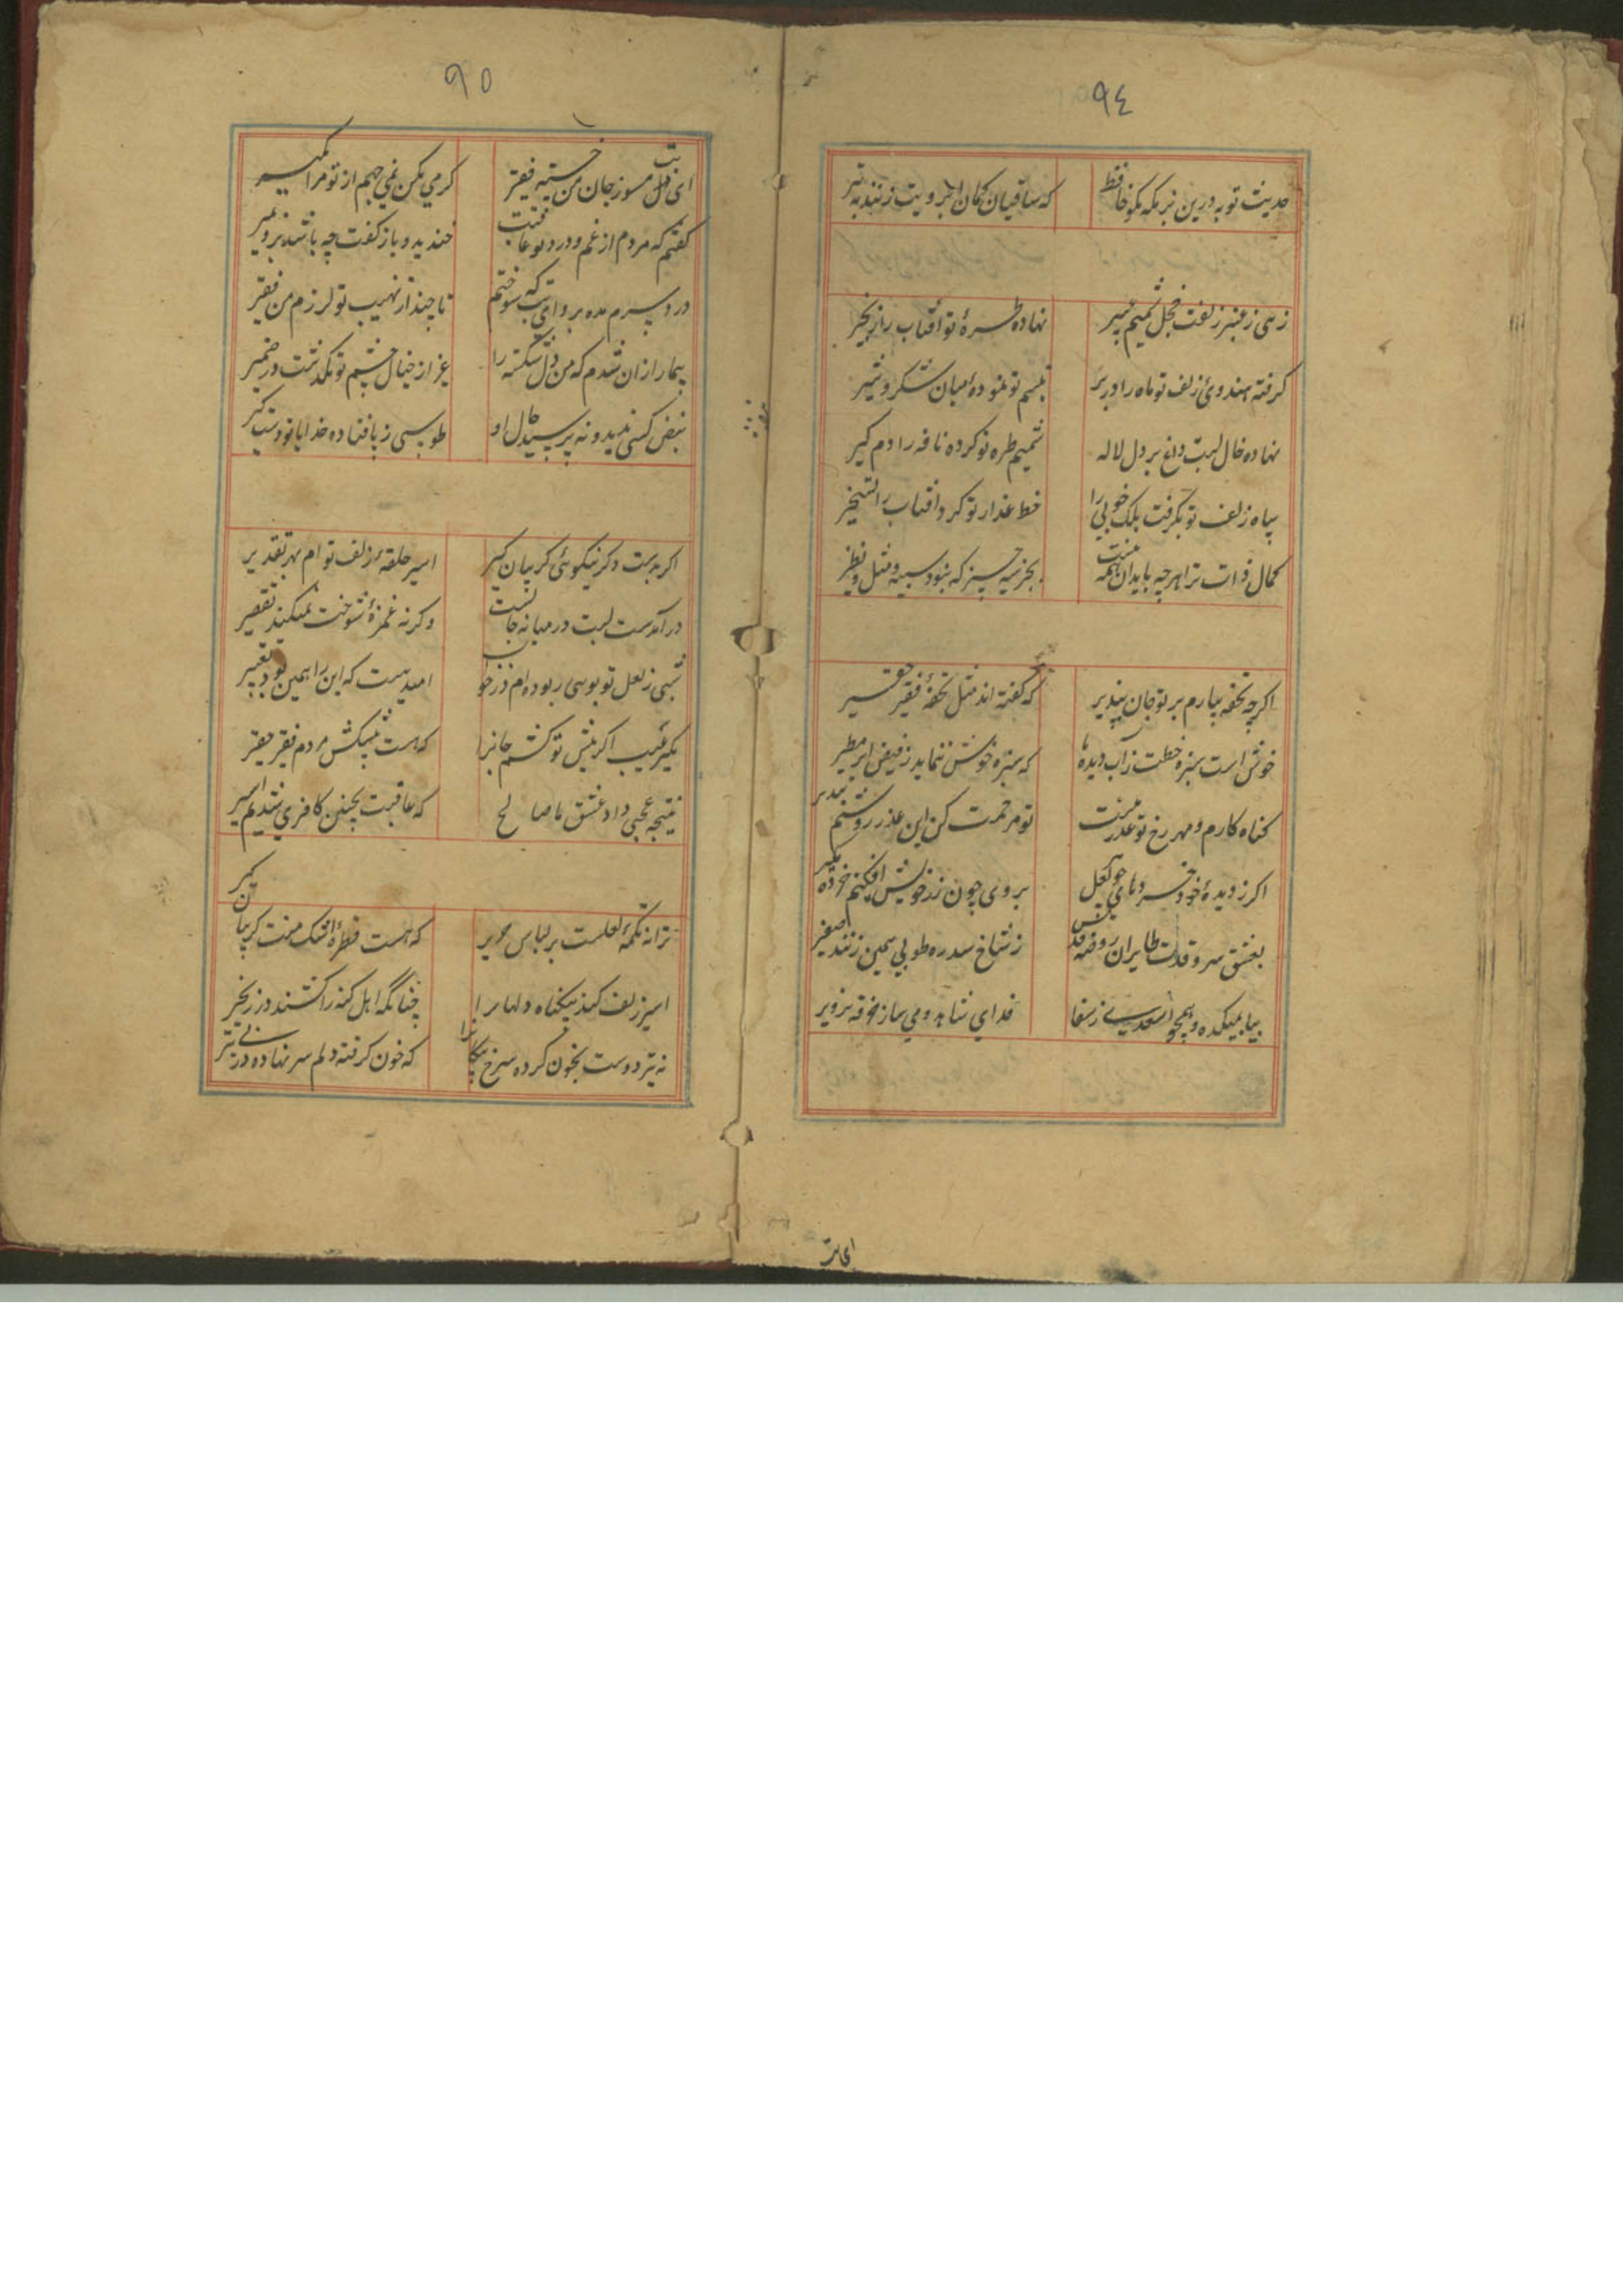 ٩٤
حدیث توبه درین بزمکه مکو حافظ
که ساقیان کمان ابرویت زنند به تیر
زهی ز عنبر زلفت خجل شمیم عبیر
نهاده طرهٔ تو آفتاب را زنجیر
کرفته هندوی زلف تو ماه را در بر
تبسم تو نموده میان شکر و شیر
نهاده خال لبت داغ بر دل لاله
شمیم طره تو کرده نافه را دم کیر
سپاه زلف تو بکرفت ملک خوبی را
خط عذار تو کرد آفتاب را تسخیر
کمال ذات ترا هر چه باید آن همه هست
بجز سه چیز که نبود شبیه و مثل و نظیر
اکر چه تحفه بیارم بر تو جان بپذیر
که گفته اند مثل تحفهٔ فقیر حقیر
خوش است سبزه خطت ز آب دیدهٔ ما
که سبزه خوش ننماید ز فیض ابر مطیر
کناه کارم و مهر رخ تو عذر منست
تو مرحمت کن این عذر روشنم بپذیر
اکر ز دیدهٔ خود
بروی چون زر خویش افکنم خرده مکیر
بعشق سرو قدت طایران روضه قدس
ز شاخ سدره طوبی همین زنند صفیر
بیا بمیکده و همچو اسعدی ز صفا
فدای شاهد و می ساز خرقه تزویر
ای تب
٩٥
ای تب مسوز جان من خسته فقیر
کرمی مکن نمی جهم از تو مرا مکیر
کفتم که مردم از غم و درد تو عاقبت
خندید و باز کفت چه باشد برو بمیر
درد سرم مده برو ای تب که سوختم
تا چند از نهیب تو لرزم من فقیر
بیمار ازان شدم که من دل شکسته را
غیر از خیال چشم تو نکذشت در ضمیر
نبض کسی ندید و نه پرسید حال او
طوسی ز پا فتاده خدایا تو دست کیر
اکر بدست و کر نیکوئی کریبان کیر
اسیر حلقهٔ زلف توام بهر تقدیر
در آمدست لبت در میانه جانست
و کرنه غمزهٔ شوخت نمیکند تقصیر
شبی ز لعل تو بوسی ربوده ام در خواب
امید هست که این را همین بود تعبیر
مکیر عیب اکر پیش تو کشم جانرا
که هست پیشکش مردم فقیر حقیر
نتیجه عجبی داد عشق ما صالح
که عاقبت بچنین کافری شدیم اسیر
ترا نه تکمهٔ لعلست بر لباس حریر
که هست قطرهٔ اشک منت کریبان کیر
اسیر زلف کند بیکناه دلها را
چنانکه اهل کنه را کشند در زنجیر
نه تیر دوست بخون کرده سرخ پیکانرا
که خون کرفته دلم سر نهاده در پی تیر